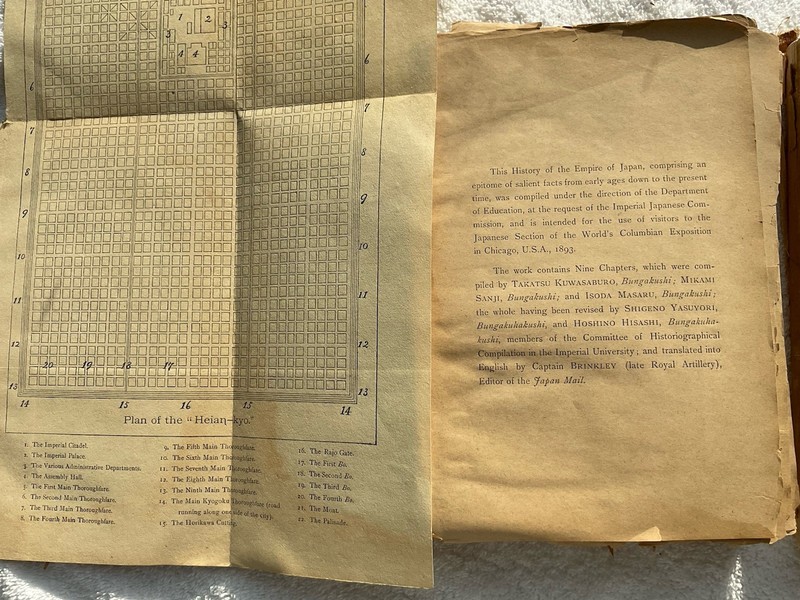 1 2
3 3
4 4
6 6
7 7
8 8
9 9
10 10
11 11
12 12
20 19 18 17
13 13
14 15 16 15 14
Plan of the "Heian-kyo."
1. The Imperial Citadel.
2. The Imperial Palace.
3. The Various Administrative Departments.
4. The Assembly Hall.
5. The First Main Thoroughfare.
6. The Second Main Thoroughfare.
7. The Third Main Thoroughfare.
8. The Fourth Main Thoroughfare.
9. The Fifth Main Thoroughfare.
10. The Sixth Main Thoroughfare.
11. The Seventh Main Thoroughfare.
12. The Eighth Main Thoroughfare.
13. The Ninth Main Thoroughfare.
14. The Main Kyogoku Thoroughfare (road
running along one side of the city).
15. The Horikawa Cutting.
16. The Rajo Gate.
17. The First Bo.
18. The Second Bo.
19. The Third Bo.
20. The Fourth Bo.
The Moat.
The Palisade.
This History of the Empire of Japan, comprising an
epitome of salient facts from early ages down to the present
time, was compiled under the direction of the Department
of Education, at the request of the Imperial Japanese Com-
mission, and is intended for the use of visitors to the
Japanese Section of the World's Columbian Exposition
in Chicago, U.S.A., 1893.
The work contains Nine Chapters, which were com-
piled by TAKATSU KUWASABURO, Bungakushi; MIKAMI
SANJI, Bungakushi; and ISODA MASARU, Bungakushi;
the whole having been revised by SHIGENO YASUYORI,
Bungakuhakushi, and HOSHINO HISASHI, Bungakuha-
kushi, members of the Committee of Historiographical
Compilation in the Imperial University; and translated into
English by Captain BRINKLEY (late Royal Artillery),
Editor of the Japan Mail.